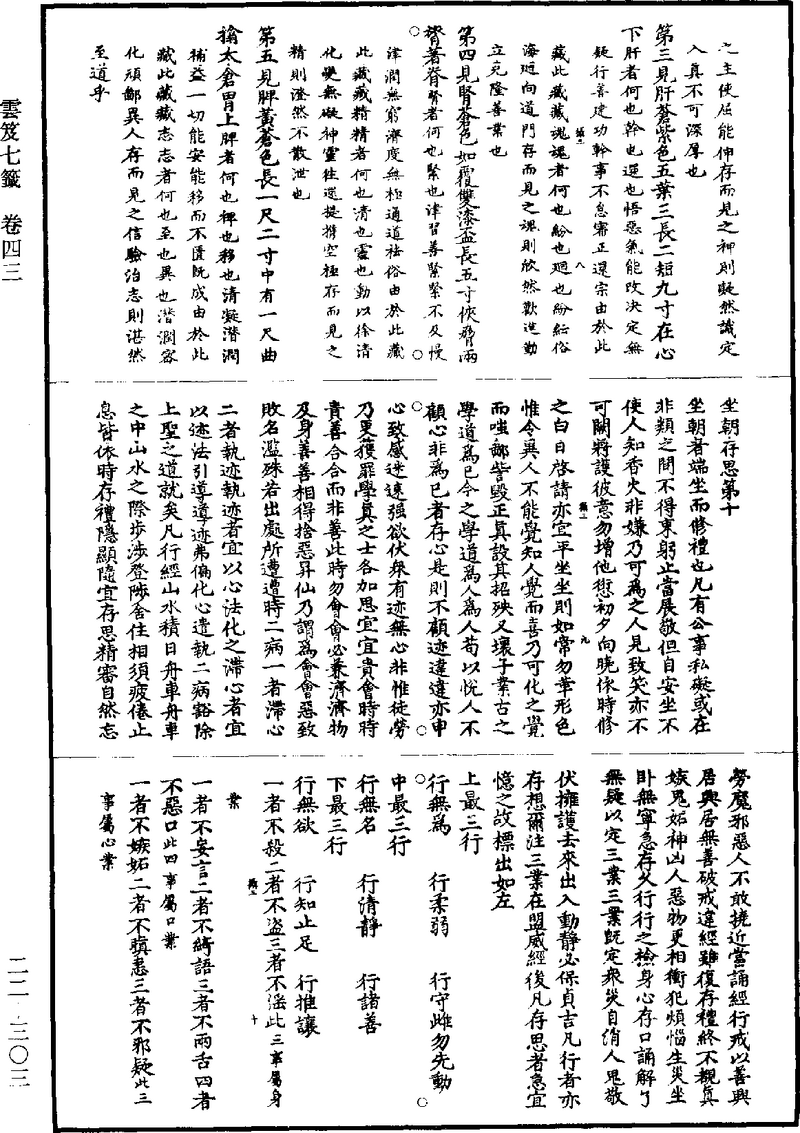 之主使屈能伸存而見之神則凝然識定
入真不可深厚也
第三見肝蒼紫色五葉三長二短九寸在心
下肝者何也幹也還也悟惡氣能改決定無
疑行善建功幹事不怠審正還宗由於此
藏此藏藏魂魂者何也紛也廻也紛紜俗
海廻向道門存而見之魂則欣然歡進勤
立克隆善業也
第四見腎蒼色如覆雙漆盃長五寸俠膂兩
膂著脊腎者何也緊也津習善緊緊不及慢
津潤無窮濟度無極通道祛俗由於此藏
此藏藏精精者何也清也靈也動以徐清
化變無礙神靈往還提攜空極存而見之
精則澄然不散泄也
第五見脾黃蒼色長一尺二寸中有一尺曲
揜太倉胃上脾者何也裨也移也清凝潛潤
補益一切能安能移而不匱既成由於此
藏此藏藏志志者何也至也異也潛潤容
化頑鄙異人存而見之信驗治志則湛然
至道乎
坐朝存思第十
坐朝者端坐而修禮也凡有公事私礙或在
非類之間不得東躬止當展敬但自安坐不
使人知香火非嫌乃可為之人見致笑亦不
可闕將護彼意勿增他愆初夕向曉依時修
之白日啓請亦宜平坐坐則如常勿華形色
惟令異人不能覺知人覺而喜乃可化之覺
而嗤鄙訾毀正真設其招殃又壞子業古之
學道為已今之學道為人為人苟以悅人不
顧心非為已者存心是則不顧迹違違亦申
心致感迷速强欲伏衆有迹無心非惟徒勞
乃更獲罪學真之士各加思宜宜貴會時時
貴善合合而非善此時勿會會必兼濟濟物
及身善善相得捨惡昇仙乃謂為會會惡致
敗名濫殊若出處所遭遭時二病一者滯心
二者執迹執迹者宜以心法化之滯心者宜
以迹法引導導迹弗偏化心遣執二病豁除
上聖之道就矣凡行經山水積日舟車舟車
之中山水之際步涉登陟舍住相須疲倦止
息皆依時存禮隱顯隨宜存思精審自然忘
勞魔邪惡人不敢撓近當誦經行戒以善興
居興居無善破戒違經雖復存禮終不覩真
嫉鬼妬神凶人惡物更相衝犯煩惱生災坐
卧無寧急存父行行之檢身心存口誦解了
無疑以定三業三業既定衆災自消人鬼敬
伏擁護去來出入動靜必保貞吉凡行者亦
存想爾注三業在盟威經後凡存思者急宜
憶之故標出如左
上最三行
行無為 行柔弱 行守雌勿先動
中最三行
行無名 行清靜 行諸善
下最三行
行無欲 行知止足 行推讓
一者不殺二者不盜三者不淫此三事屬身
業
一者不妄言二者不綺語三者不兩舌四者
不惡口此四事屬口業
一者不嫉妬二者不瞋恚三者不邪疑此三
事屬心業
雲笈七籤 卷四三
二二-三〇三